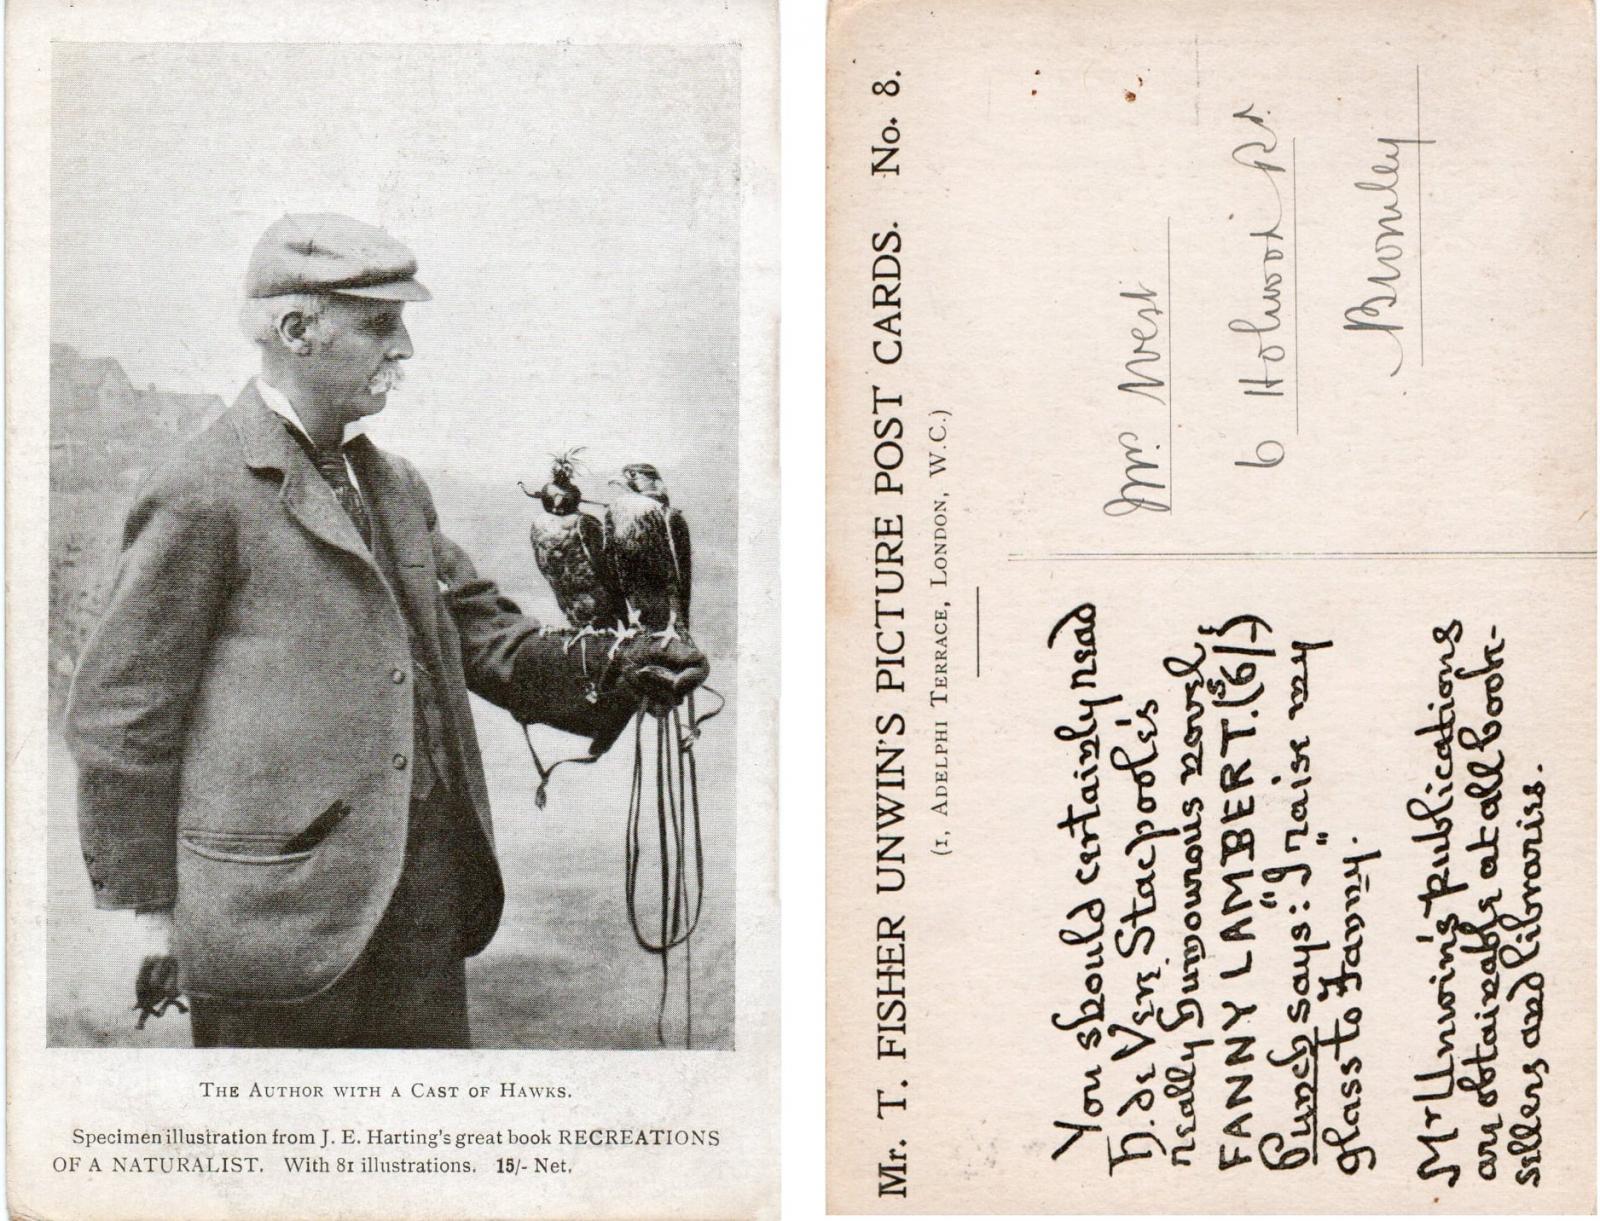 THE AUTHOR WITH A CAST OF HAWKS.
Specimen illustration from J. E. Harting's great book RECREATIONS
OF A NATURALIST. With 81 illustrations. 15/- Net.
Mr. T. FISHER UNWIN'S PICTURE POST CARDS. No. 8.
(1, ADELPHI TERRACE, LONDON, W.C.)
You should certainly read
H. de Vere Stacpoole's
really humourous novel
FANNY LAMBERT. (6/-)
Punch says: "I raise my
glass to Fanny."
Mr Unwin's publications
are obtainable at all book-
sellers and libraries.
Mr. West
6 Holwood Rd.
Bromley